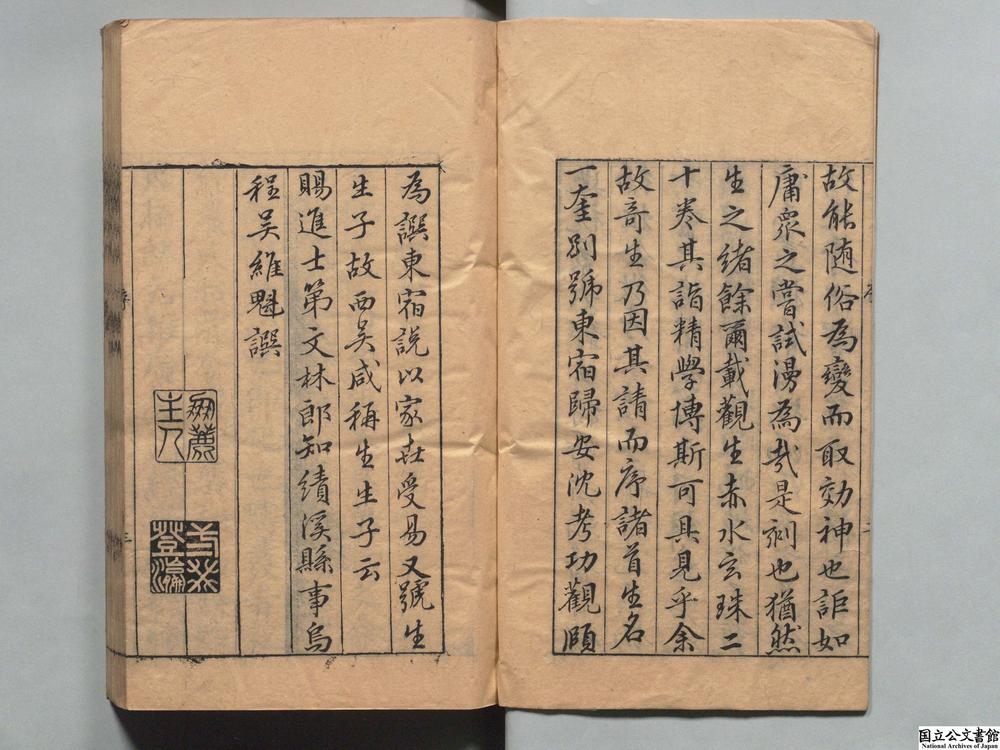 故能随俗為變而取効神也詎如
庸衆之嘗試漫為㢤是刻也猶然
生之緒餘爾載觀生赤水玄珠二
十卷其詣精學博斯可具見乎余
故奇生乃因其請而序諸首生名
一奎別號東宿歸安沈考功觀頤
為譔東宿説以家世受易又號生
生子故西吴咸稱生生子云
賜進士第文林郎知績溪縣事烏
程吴維魁譔
主人
登瀛
序
三
国立公文書館
National Archives of Japan